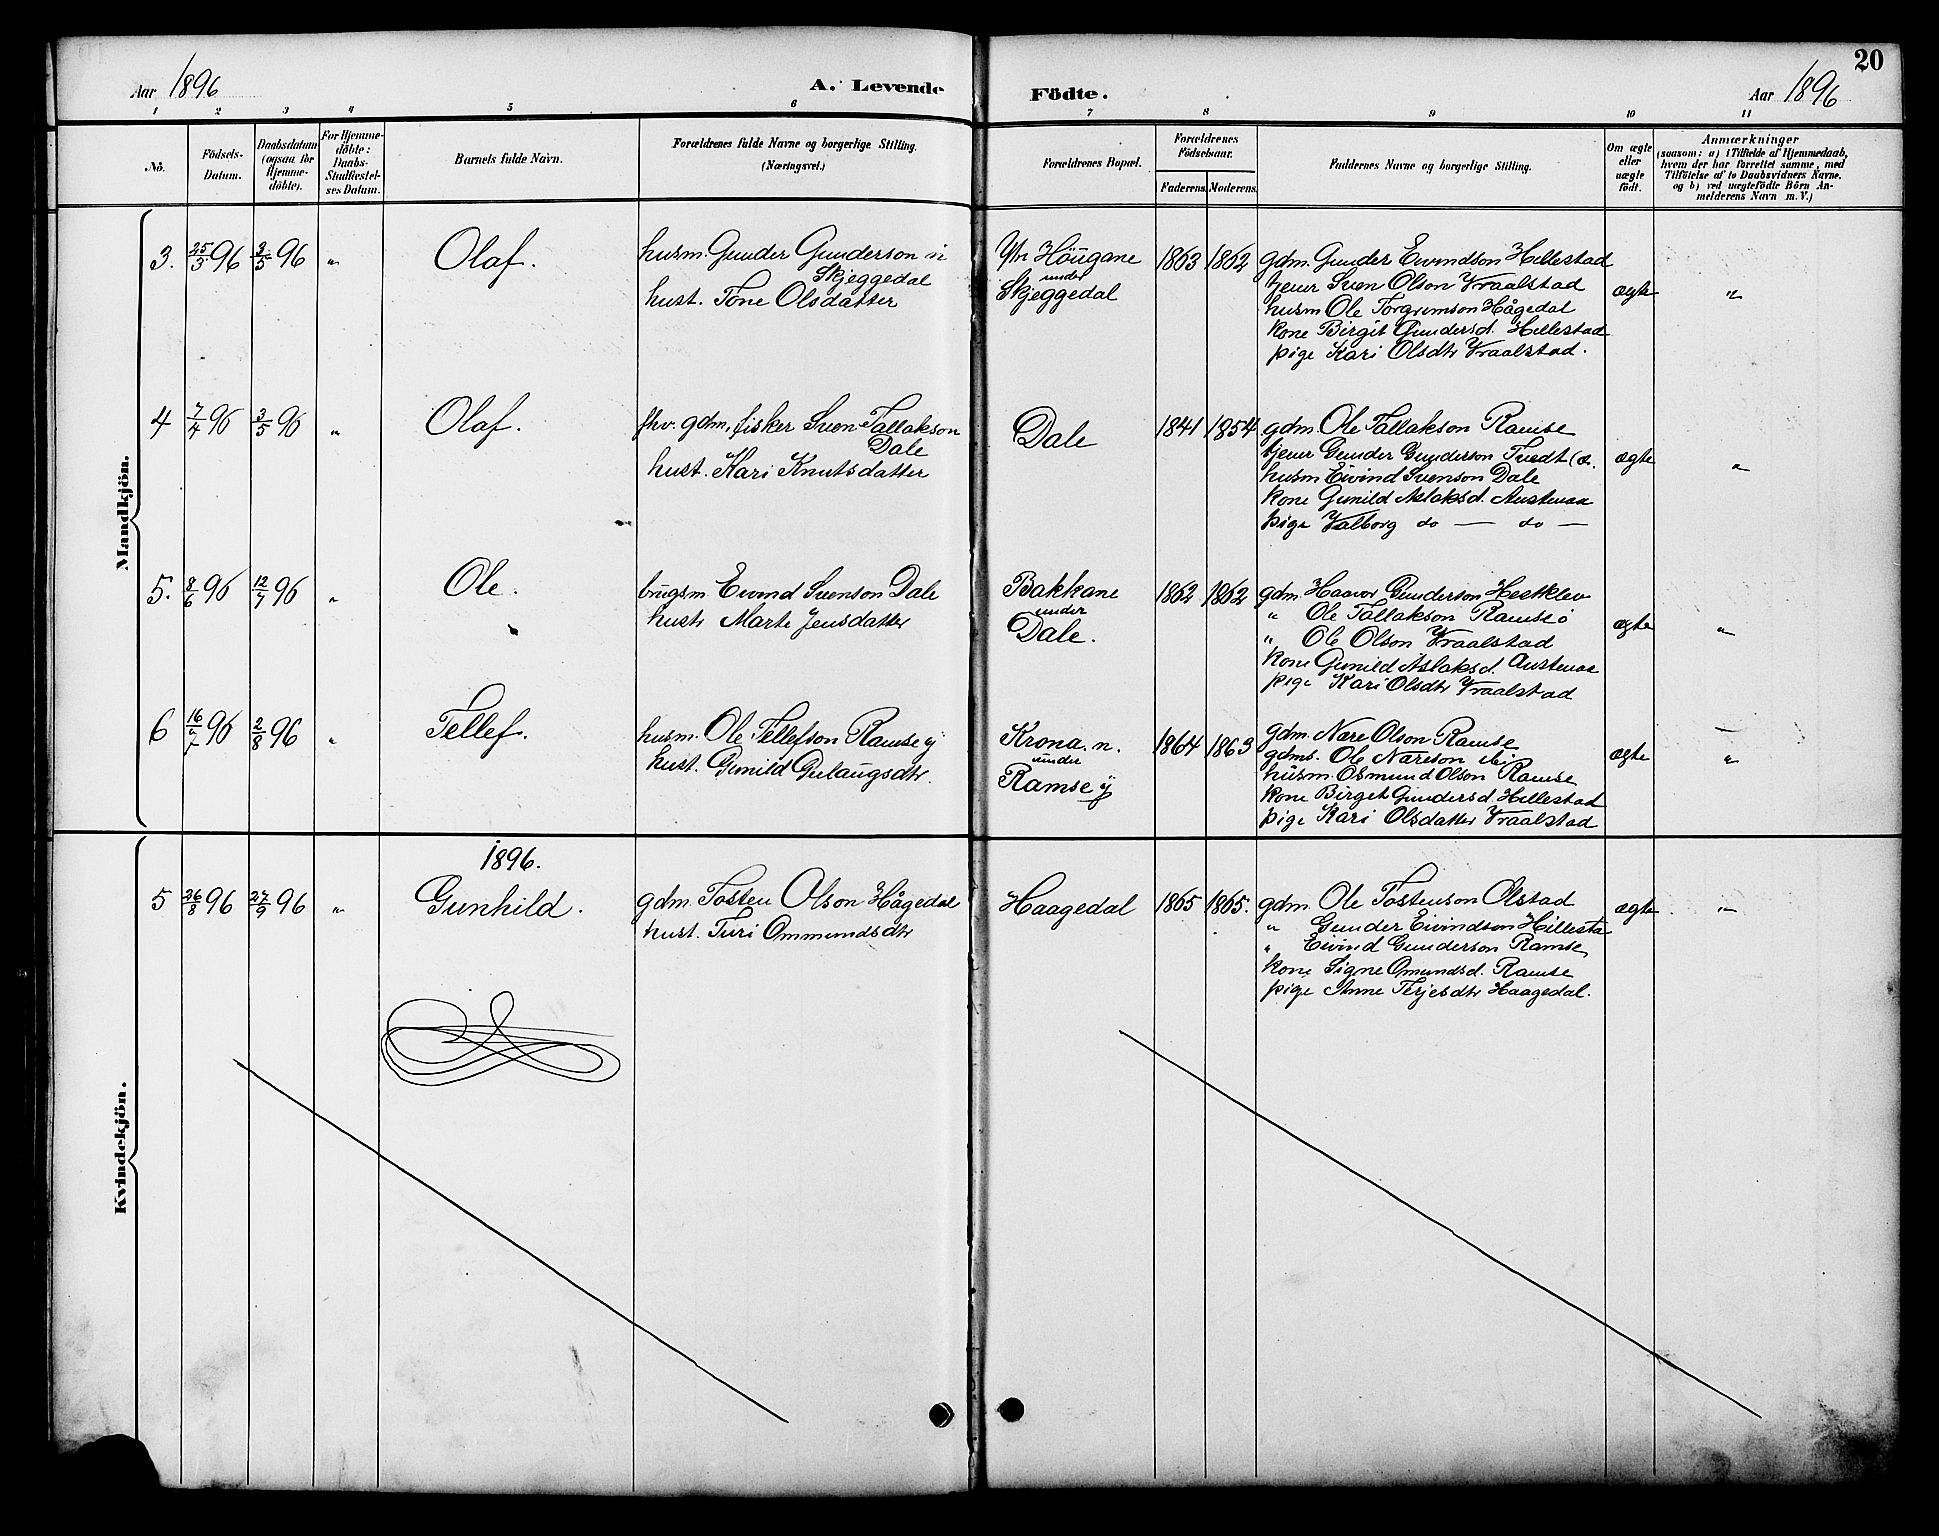 20
Aar 1896
A. Levende
Födte.
Aar 1896
1 2 3 4 5 6 7 8 9 10 11
No.
Födsels-
Datum.
Daabsdatum
(ogsaa for
Hjemme-
döbte).
For Hjemme-
döbte:
Daabs-
Stadfæstel-
ses Datum.
Barnets fulde Navn.
Forældrenes fulde Navne og borgerlige Stilling.
(Næringsvei.)
Forældrenes Bopæl.
Forældrenes
Födselsaar.
Faderens. Moderens.
Faddernes Navne og borgerlige Stilling.
Om ægte
eller
uægte
födt.
Anmærkninger
(saasom: a) i Tilfælde af Hjemmedaab,
hvem der har forrettet samme, med
Tilföielse af to Daabsvidners Navne.
og b) ved uægtefödte Börn An-
melderens Navn m. V.)
Mandkjön.
3. 25/3 96 3/5 96 " Olaf.
husm. Gunder Gunderson i
Skjeggedal
hust. Tone Olsdatter
Ytr Höügane
under
Skjeggedal
1863 1862
gdm. Gunder Eivindson Hillestad
tjener Sven Olson Vraalstad
husm Ole Torgrimson Hågedal
kone Birgit Gundersd. Hillestad
pige Kari Olsdtr Vraalstad.
ægte "
4 7/4 96 3/5 96 " Olaf.
fhv. gdm, fisker Sven Tallakson
Dale
hust. Kari Knutsdatter
Dale
1841 1854
gdm. Ole Tallakson Ramse
tjener Gunder Gunderson Tvedt
husm Eivind Svenson Dale
kone Gunild Aslaksd. Austenaa
pige Valborg do — do —
ægte "
5. 8/6 96 12/7 96 " Ole.
brugsm Eivind Svenson Dale
hustr Marte Jensdatter
Bakkane
under
Dale.
1862 1862
gdm. Haavor Gunderson Hestklev
" Ole Tallakson Ramse i
" Ole Olson Vraalstad
kone Gunild Aslaksd. Austenaa
pige Kari Olsdtr Vraalstad
ægte "
6 16/7 96 2/8 96 " Tellef.
husm. Ole Tellefson Ramse y
hust. Gunild Gulaugsdtr.
Krona. n.
under
Ramse y
1864 1863
gdm. Nare Olson Ramse
gdms. Ole Nareson ibi
husm. Osmund Olson Ramse
kone Birget Gundersd. Hillestad
pige Kari Olsdatter Vraalstad
ægte "
Kvindekjön.
1896.
5 26/8 96 27/9 96 " Gunhild.
gdm. Tosten Olson Hågedal
hust. Turi Ommundsdtr
Haagedal
1865 1865.
gdm. Ole Tostenson Olstad
" Gunder Eivindson Hillesta
" Eivind Gunderson Ramse
kone Signe Omundsd. Ramse
pige Anne Terjesdtr Haagedal.
ægte "